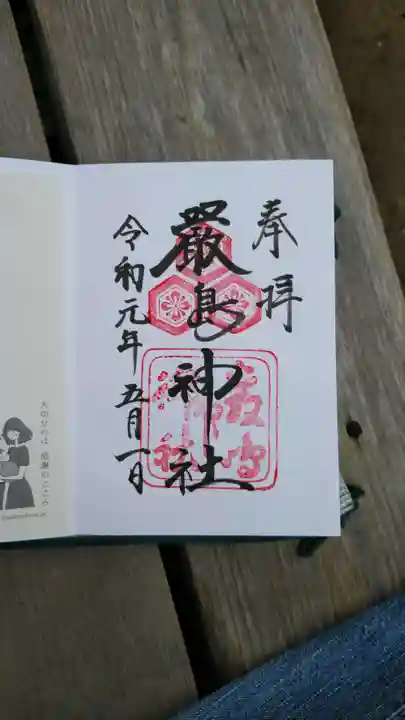 奉拝
厳島神社
令和元年五月一日
大切なのは 感謝のこころ